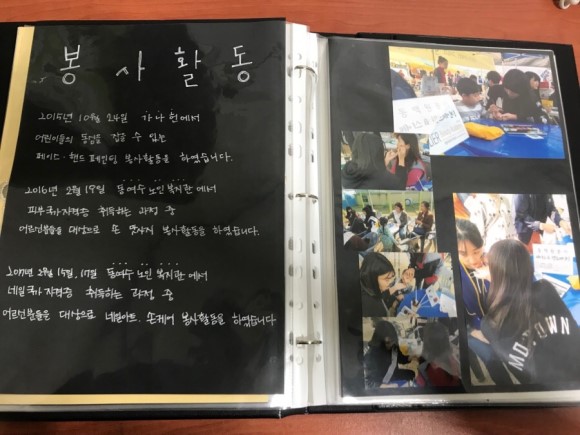 봉사활동
2015년 10월 24일 가나헌에서
어린이들의 동심을 잡을 수 있는
페이스·핸드 페인팅 봉사활동을 하였습니다.
2016년 2월 17일 동여수 노인 복지관에서
피부국가자격증 취득하는 과정 중
어르신분들을 대상으로 손 맛사지 봉사활동을 하였습니다.
2017년 2월 15일, 17일 동여수 노인 복지관에서
네일국가자격증 취득하는 과정 중
어르신분들을 대상으로 네일아트, 손케어 봉사활동을 하였습니다
MOTOWN